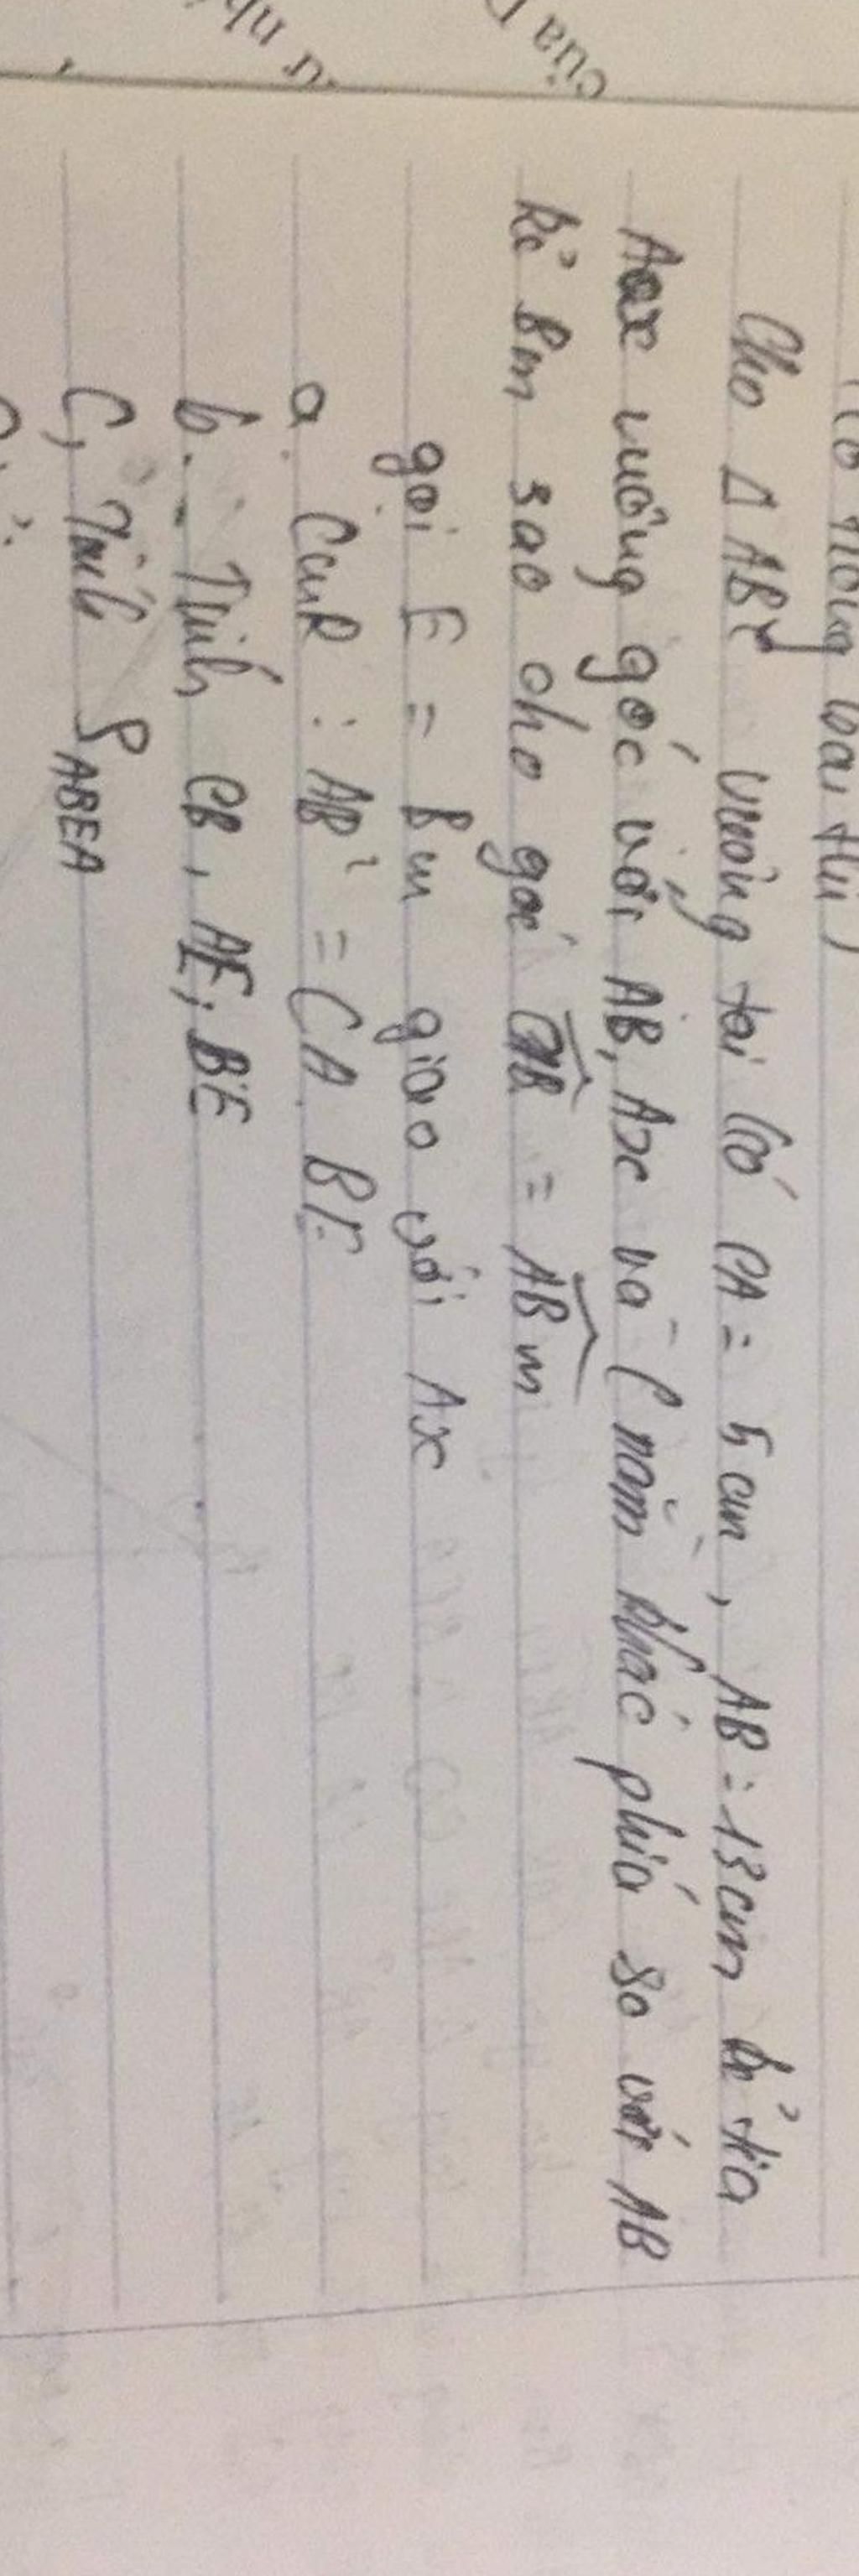 của
Cho Δ ABC vuông tại C có CA = 5 cm, AB = 13 cm kẻ tia
Ax vuông góc với AB, Ax và C nằm khác phía so với AB
kẻ Bm sao cho góc CAB = ABm
gọi E = Bm giao với Ax
a. CmR : AB² = CA. BE
b. Tính CB, AE, BE
C, Tính S ABEA